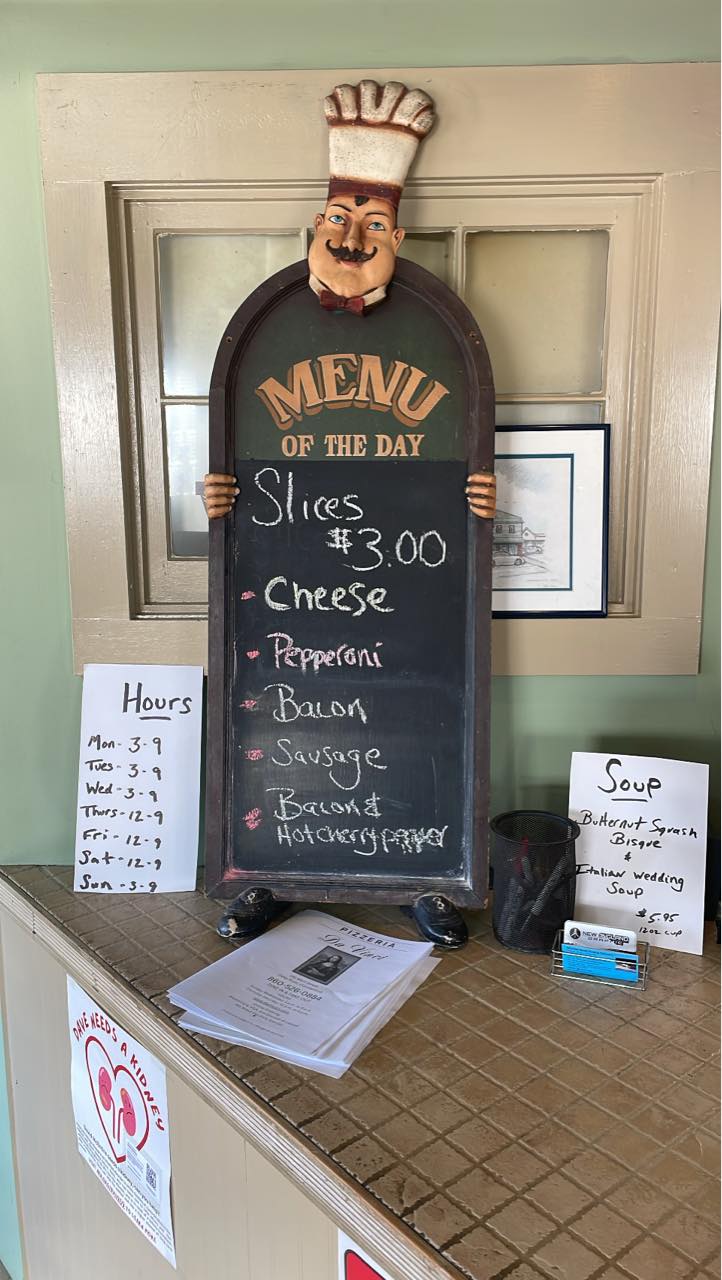 MENU
OF THE DAY
Slices
$3.00
Cheese
Pepperoni
Bacon
Sausage
Bacon &
Hot cherry pepper
Hours
Mon - 3-9
Tues - 3-9
Wed - 3-9
Thurs - 12-9
Fri - 12-9
Sat - 12-9
Sun - 3-9
Soup
Butternut Squash
Bisque
&
Italian Wedding
Soup
$5.95
12oz cup
PIZZERIA
Da Vinci
860-526-0884
NEW ENGLAND
DAVE NEEDS A KIDNEY